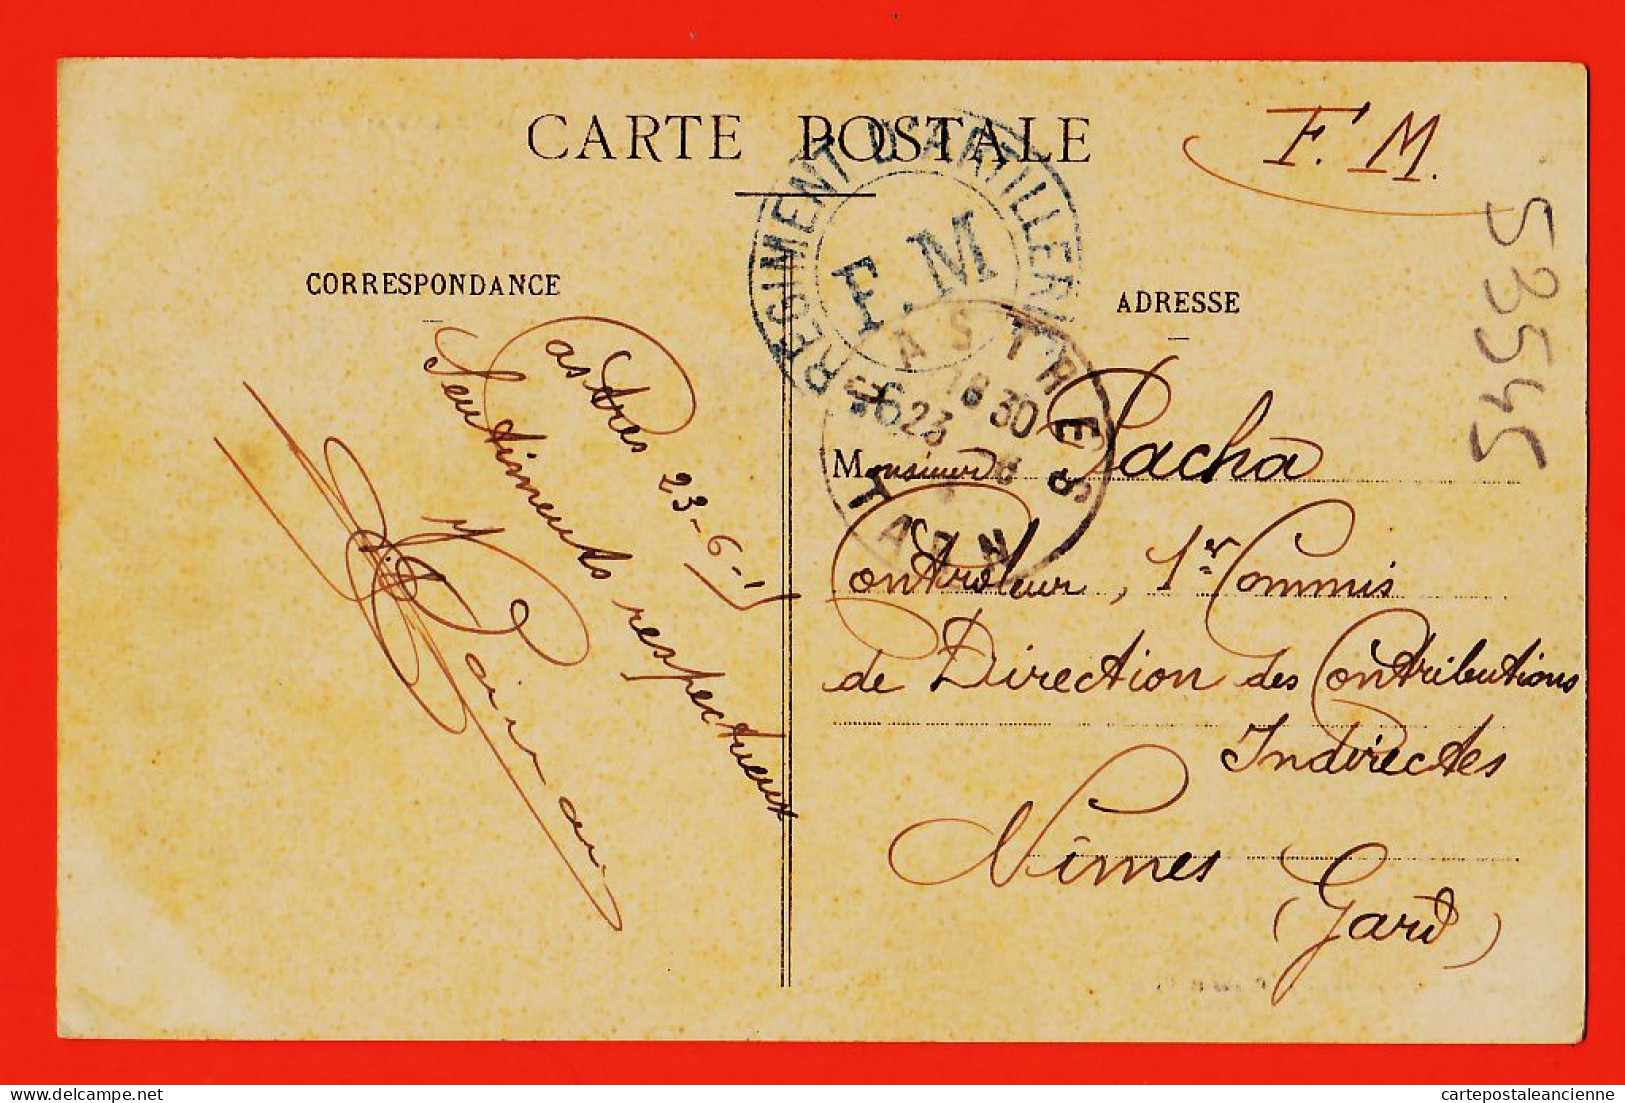 CARTE POSTALE
F. M.
53545
REGIMENT D'ARTILLERIE
F. M
CORRESPONDANCE
ADRESSE
CASTRES
18 30
23
TARN
Castres 23-6-1
Sentiments respectueux
Monsieur Pacha
Contrôleur, 1er Commis
de Direction des Contributions
Indirectes
Nîmes
(Gard)
cartepostaleancienne